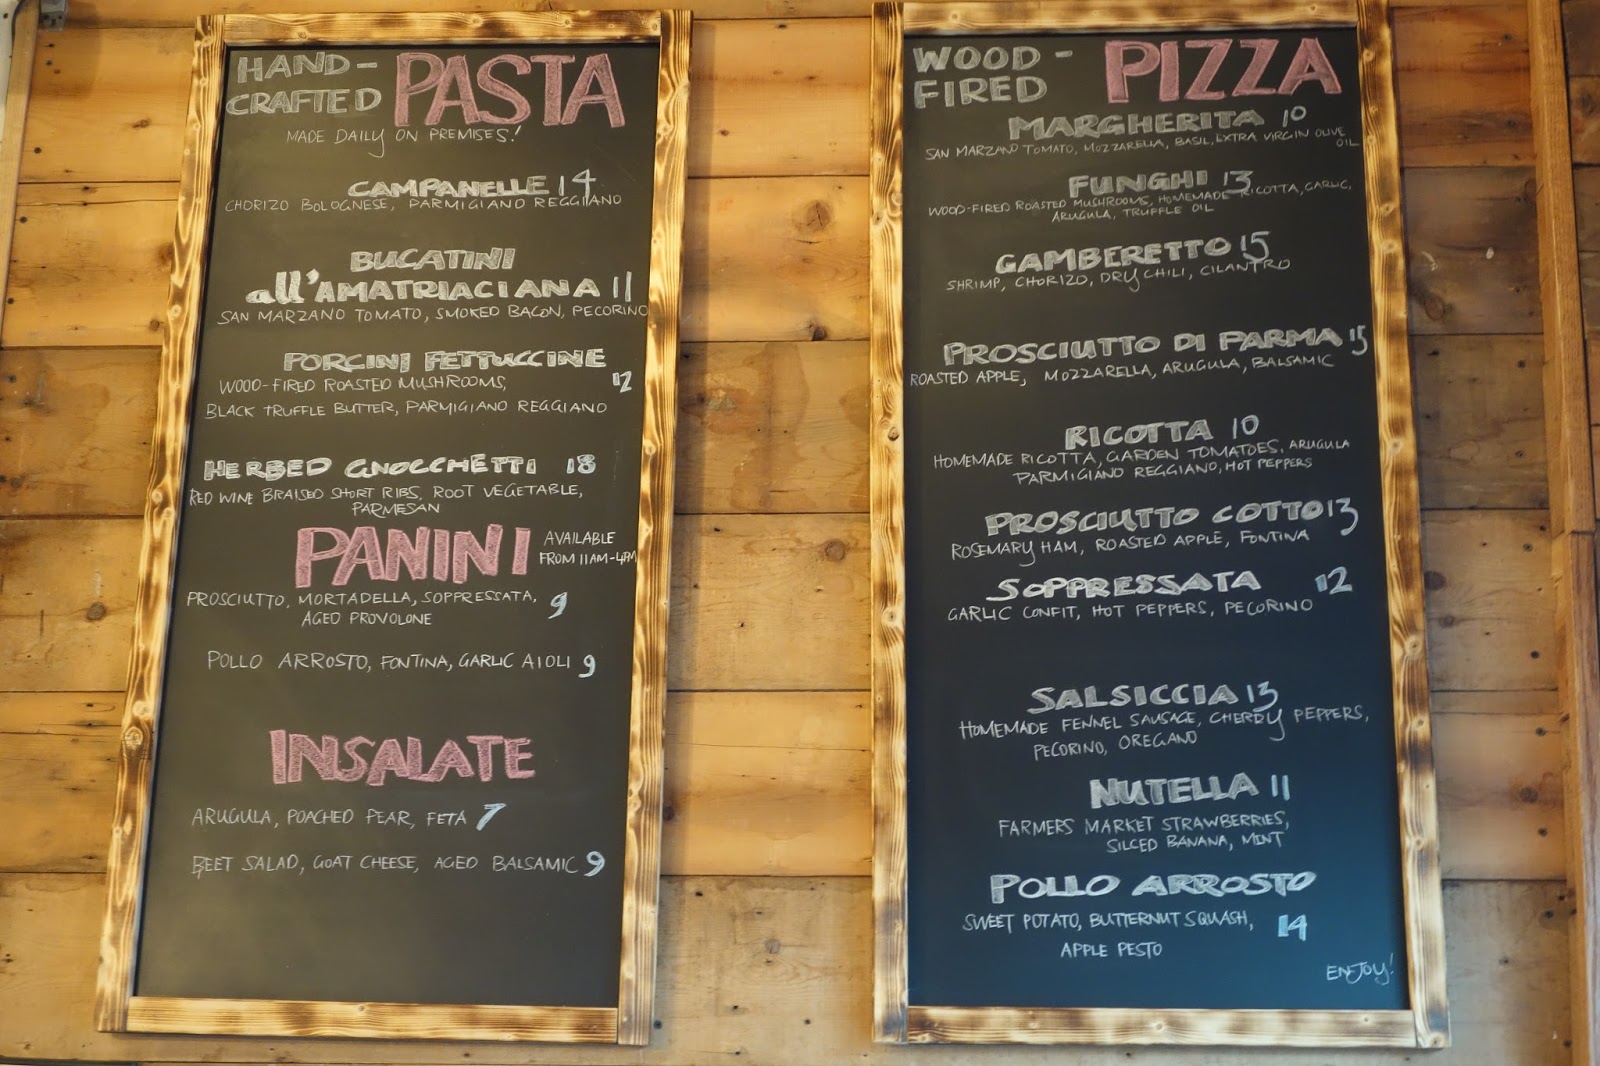 HAND-
CRAFTED PASTA
MADE DAILY ON PREMISES!
CAMPANELLE 14
CHORIZO BOLOGNESE, PARMIGIANO REGGIANO
BUCATINI
all'AMATRIACIANA 11
SAN MARZANO TOMATO, SMOKED BACON, PECORINO
PORCINI FETTUCCINE
WOOD-FIRED ROASTED MUSHROOMS, 12
BLACK TRUFFLE BUTTER, PARMIGIANO REGGIANO
HERBED GNOCCHETTI 18
RED WINE BRAISED SHORT RIBS, ROOT VEGETABLE,
PARMESAN
PANINI AVAILABLE
FROM 11AM-4PM
PROSCIUTTO, MORTADELLA, SOPPRESSATA, 9
AGED PROVOLONE
POLLO ARROSTO, FONTINA, GARLIC AIOLI 9
INSALATE
ARUGULA, POACHED PEAR, FETA 7
BEET SALAD, GOAT CHEESE, AGED BALSAMIC 9
WOOD-
FIRED PIZZA
MARGHERITA 10
SAN MARZANO TOMATO, MOZZARELLA, BASIL, EXTRA VIRGIN OLIVE
OIL
FUNGHI 13
WOOD-FIRED ROASTED MUSHROOMS, HOMEMADE RICOTTA, GARLIC,
ARUGULA, TRUFFLE OIL
GAMBERETTO 15
SHRIMP, CHORIZO, DRY CHILI, CILANTRO
PROSCIUTTO DI PARMA 15
ROASTED APPLE, MOZZARELLA, ARUGULA, BALSAMIC
RICOTTA 10
HOMEMADE RICOTTA, GARDEN TOMATOES, ARUGULA
PARMIGIANO REGGIANO, HOT PEPPERS
PROSCIUTTO COTTO 13
ROSEMARY HAM, ROASTED APPLE, FONTINA
SOPPRESSATA 12
GARLIC CONFIT, HOT PEPPERS, PECORINO
SALSICCIA 13
HOMEMADE FENNEL SAUSAGE, CHERRY PEPPERS,
PECORINO, OREGANO
NUTELLA 11
FARMERS MARKET STRAWBERRIES,
SILCED BANANA, MINT
POLLO ARROSTO
SWEET POTATO, BUTTERNUT SQUASH, 14
APPLE PESTO
ENJOY!